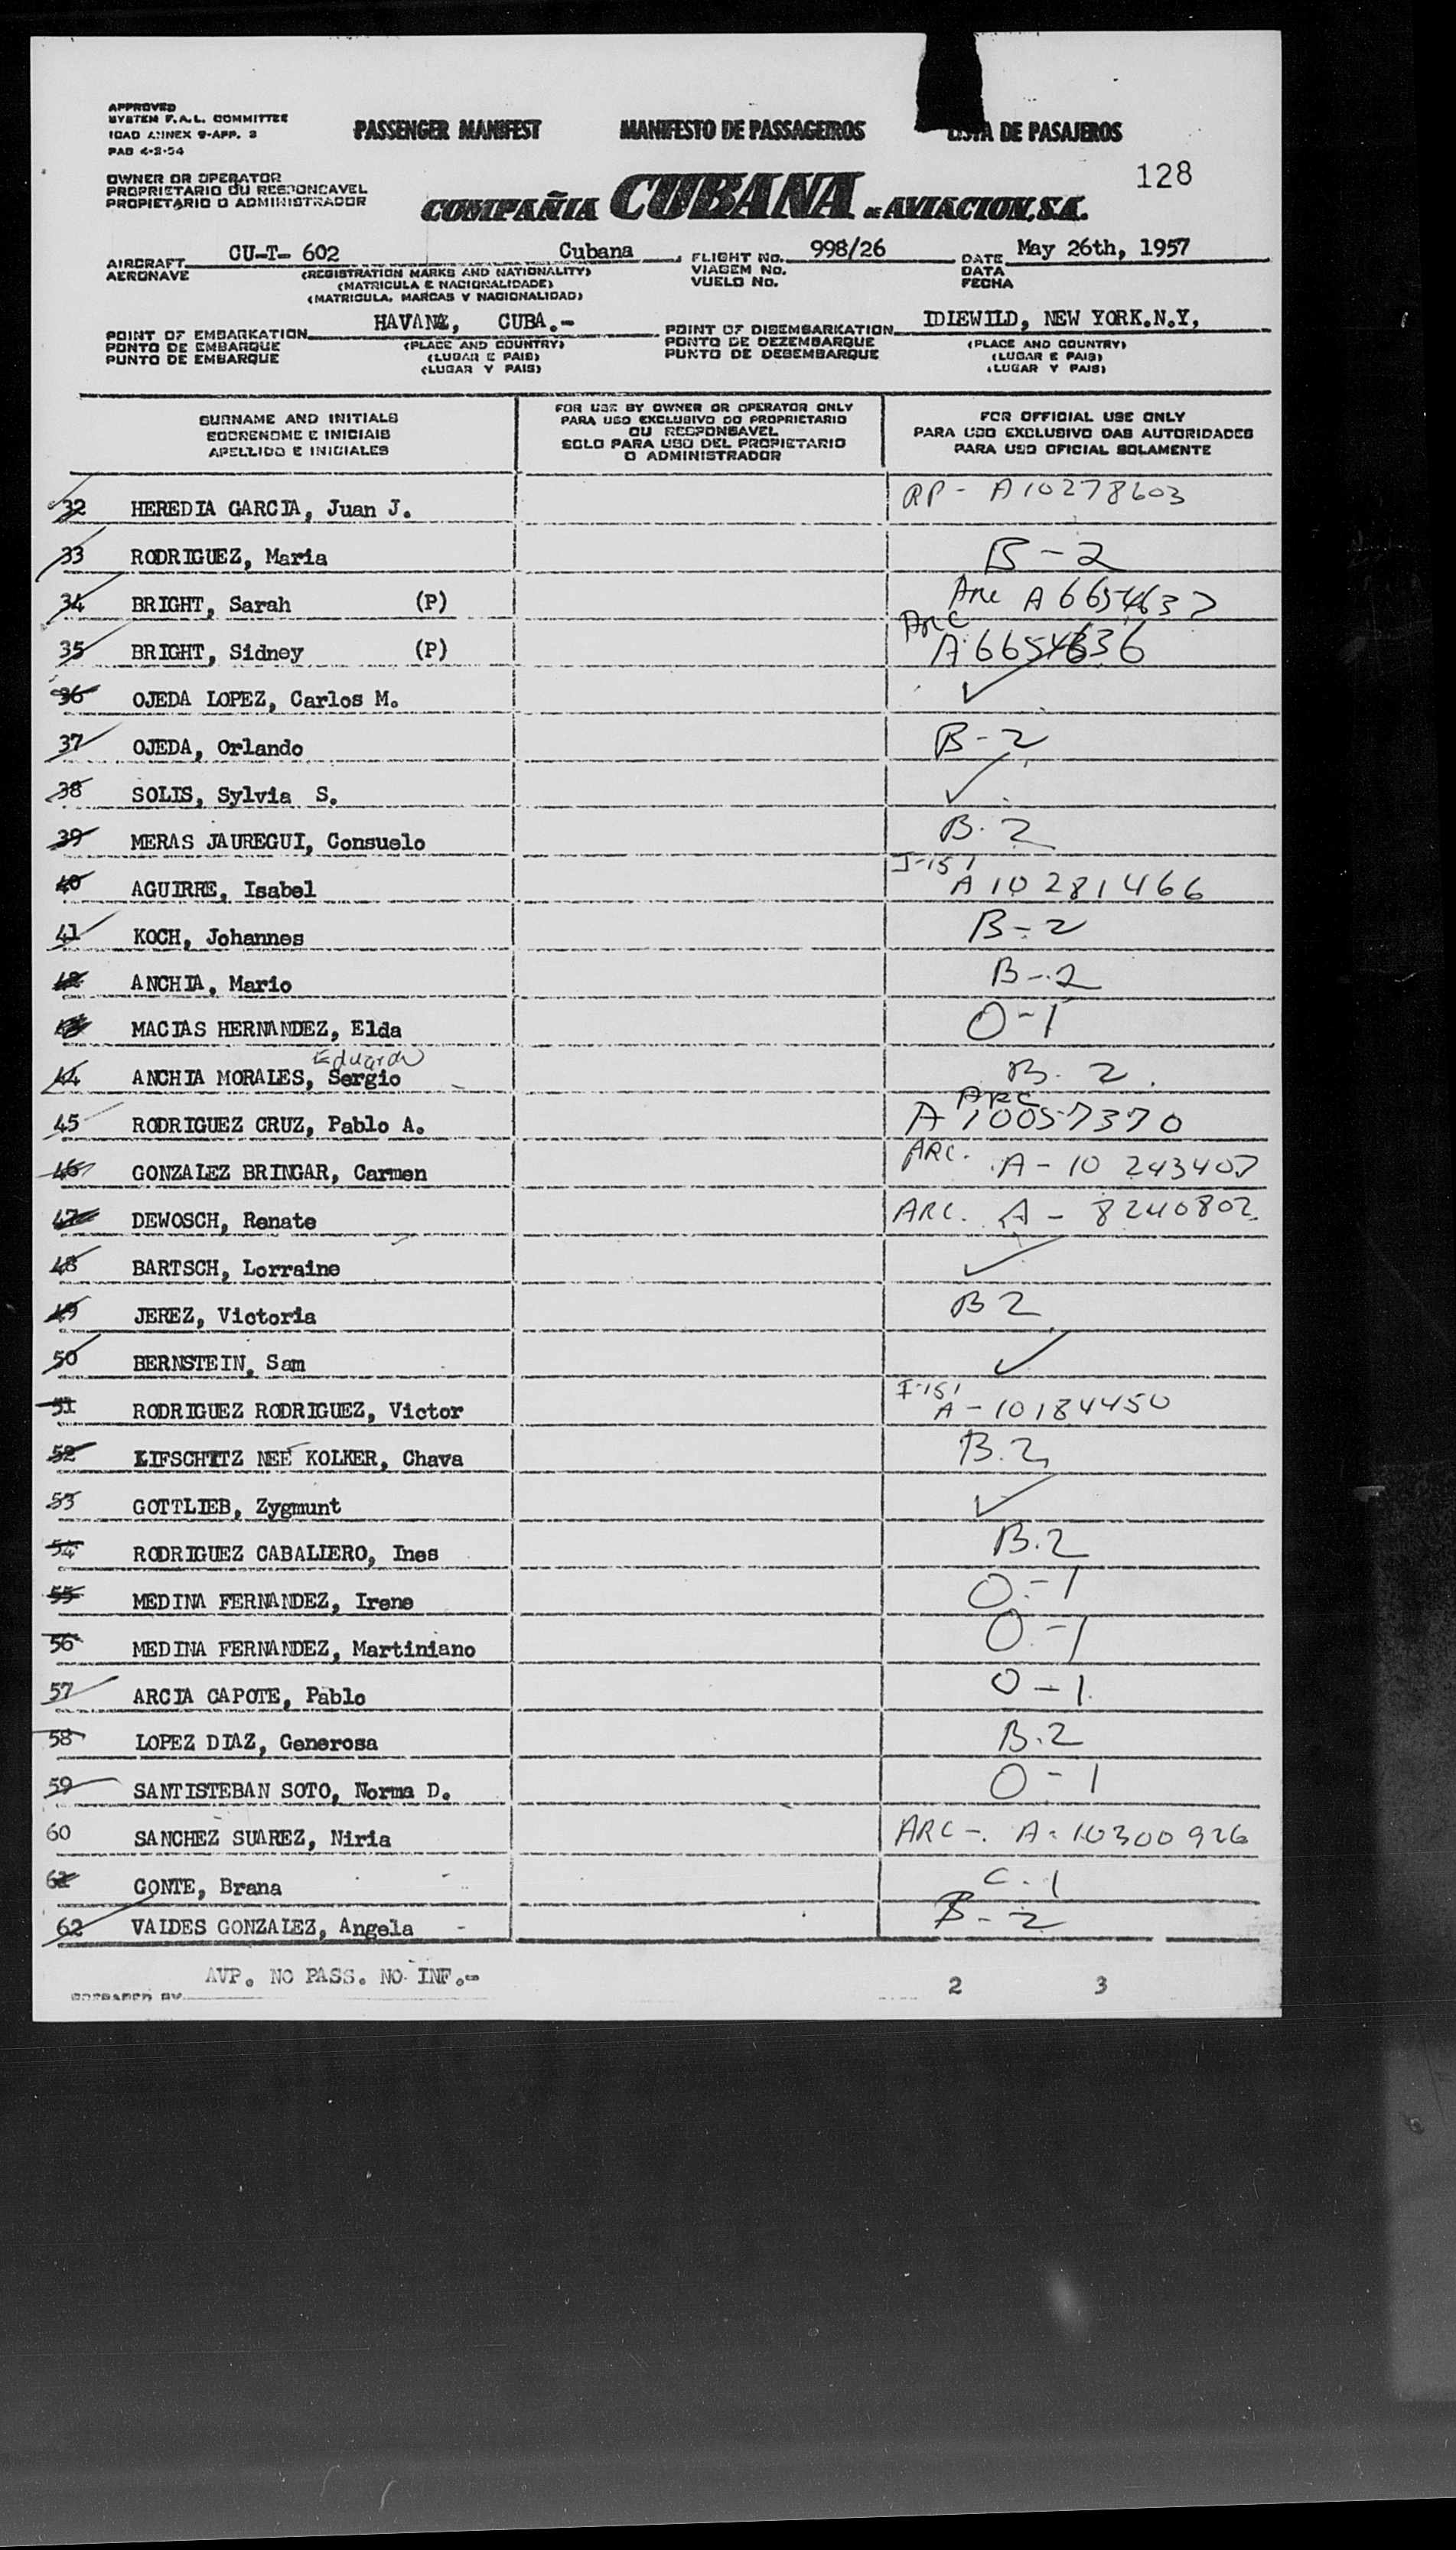 APPROVED
SYSTEM F.A.L. COMMITTEE
ICAO ANNEX 9-APP. 3
PAB 4-2-54
PASSENGER MANIFEST MANIFESTO DE PASSAGEIROS LISTA DE PASAJEROS
128
OWNER OR OPERATOR
PROPRIETARIO OU RESPONCAVEL
PROPIETARIO O ADMINISTRADOR
COMPAÑIA CUBANA DE AVIACION, S.A.
AIRCRAFT CU-T- 602 Cubana FLIGHT No. 998/26 DATE May 26th, 1957
AERONAVE (REGISTRATION MARKS AND NATIONALITY) VIAGEM No. DATA
(MATRICULA E NACIONALIDADE) VUELO No. FECHA
(MATRICULA, MARCAS Y NACIONALIDAD)
POINT OF EMBARKATION HAVANA, CUBA.- POINT OF DISEMBARKATION IDIEWILD, NEW YORK.N.Y,
PONTO DE EMBARQUE (PLACE AND COUNTRY) PONTO DE DEZEMBARQUE (PLACE AND COUNTRY)
PUNTO DE EMBARQUE (LUGAR E PAIS) PUNTO DE DESEMBARQUE (LUGAR E PAIS)
(LUGAR Y PAIS) (LUGAR Y PAIS)
SURNAME AND INITIALS
SOBRENOME E INICIAIS
APELLIDO E INICIALES
FOR USE BY OWNER OR OPERATOR ONLY
PARA USO EXCLUSIVO DO PROPRIETARIO
OU RESPONSAVEL
SOLO PARA USO DEL PROPIETARIO
O ADMINISTRADOR
FOR OFFICIAL USE ONLY
PARA USO EXCLUSIVO DAS AUTORIDADES
PARA USO OFICIAL SOLAMENTE
32 HEREDIA GARCIA, Juan J. RP- A10278603
33 RODRIGUEZ, Maria B-2
34 BRIGHT, Sarah (P) Arc A6654637
35 BRIGHT, Sidney (P) ARC A6654636
36 OJEDA LOPEZ, Carlos M. ✓
37 OJEDA, Orlando B-2
38 SOLIS, Sylvia S. ✓
39 MERAS JAUREGUI, Consuelo B.2
40 AGUIRRE, Isabel I-151 A10281466
41 KOCH, Johannes B-2
42 ANCHIA, Mario B-2
43 MACIAS HERNANDEZ, Elda O-1
Eduardo
44 ANCHIA MORALES, Sergio B.2.
45 RODRIGUEZ CRUZ, Pablo A. ARC A10057370
46 GONZALEZ BRINGAR, Carmen ARC. A-10 243407
47 DEWOSCH, Renate ARC. A-8240802
48 BARTSCH, Lorraine ✓
49 JEREZ, Victoria B2
50 BERNSTEIN, Sam ✓
51 RODRIGUEZ RODRIGUEZ, Victor I-151 A-10184450
52 LIFSCHITZ NEE KOLKER, Chava B.2
53 GOTTLIEB, Zygmunt ✓
54 RODRIGUEZ CABALIERO, Ines B.2
55 MEDINA FERNANDEZ, Irene O-1
56 MEDINA FERNANDEZ, Martiniano O-1
57 ARCIA CAPOTE, Pablo O-1
58 LOPEZ DIAZ, Generosa B.2
59 SANTISTEBAN SOTO, Norma D. O-1
60 SANCHEZ SUAREZ, Niria ARC-. A-10300926
61 GONTE, Brana C.1
62 VALDES GONZALEZ, Angela B-2
AVP. NO PASS. NO INF.-
PREPARED BY 2 3